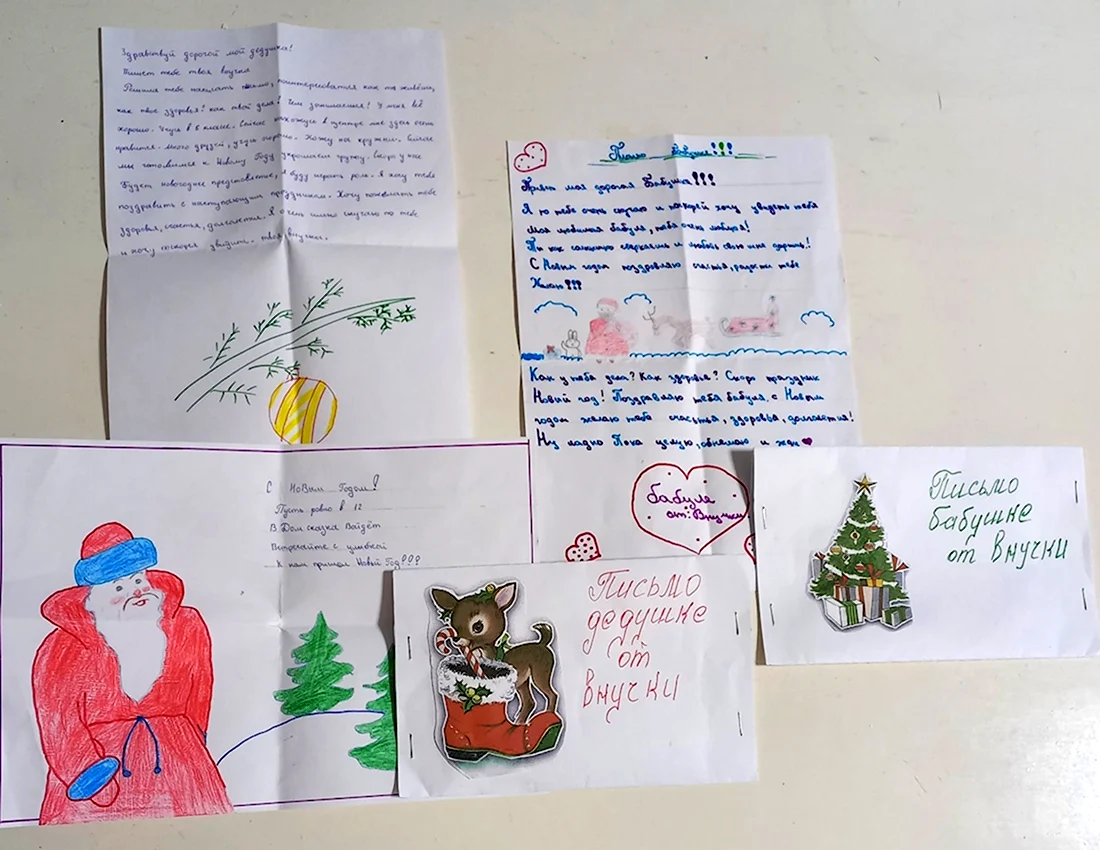 Здравствуй дорогой мой дедушка!
Пишет тебе твоя внучка
Решила тебе написать письмо, поинтересоваться как ты живёшь,
как твоё здоровье? как твои дела? Чем занимаешься? У меня всё
хорошо. Учусь в 5 классе. Сейчас нахожусь в центре мне здесь очень
нравится. много друзей, учусь хорошо. Хожу на кружки. Сейчас
мы готовимся к Новому Году украшаем группу. Скоро у нас
будет новогоднее представление, я буду играть роль. Я хочу тебя
поздравить с наступающим праздником. Хочу пожелать тебе
здоровья, счастья, долголетия. Я очень сильно скучаю по тебе
и хочу поскорее увидеть. твоя внучка.
Письмо Бабушке!!!
Привет моя дорогая Бабушка!!!
Я по тебе очень скучаю и поскорей хочу увидеть тебя
Моя любимая бабуля, тебя очень люблю!
Ты как солнышко сверкаешь и любовь свою мне даришь!
С Новым годом поздравляю счастья, радости тебе
Желаю!!!
Как у тебя дела? Как здоровье? Скоро праздник
Новый год! Поздравляю тебя бабуля, с Новым
годом желаю тебе счастья, здоровья, долголетия!
Ну ладно Пока целую, обнимаю и жду
бабуле
от: Внучки
С Новым Годом!
Пусть ровно в 12
В Дом сказка Войдёт
Встречайте с улыбкой
К нам пришел Новый Год!!!
Письмо
дедушке
от
внучки
Письмо
бабушке
от внучки